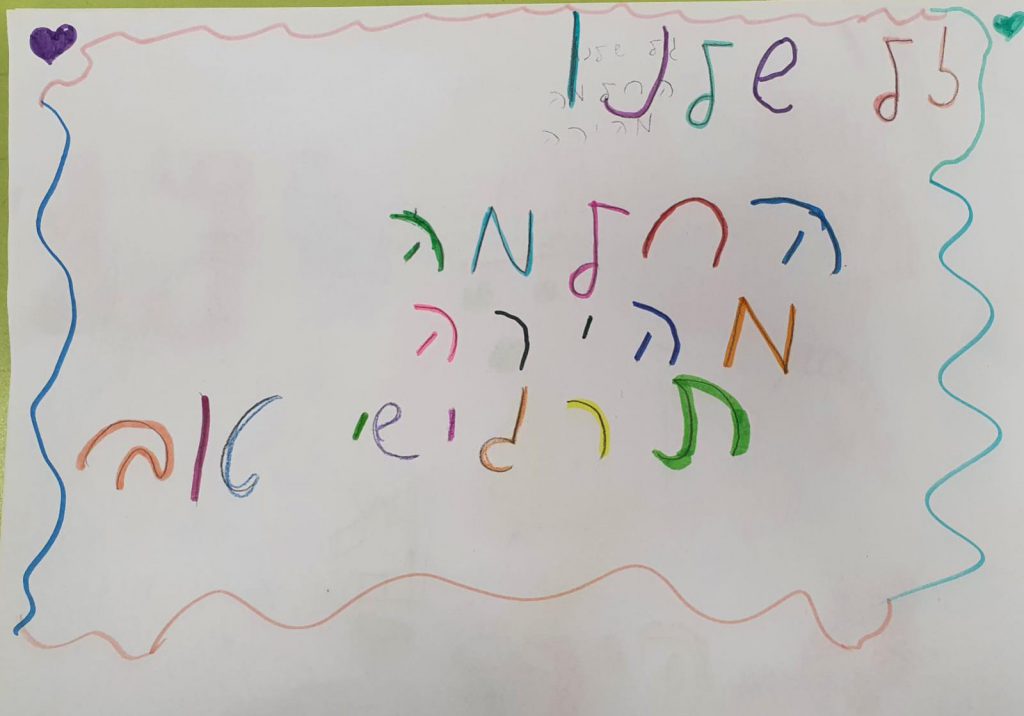 גל שלנו
גל שלנו
החלמה
מהירה
החלמה
מהירה
תרגישי טוב